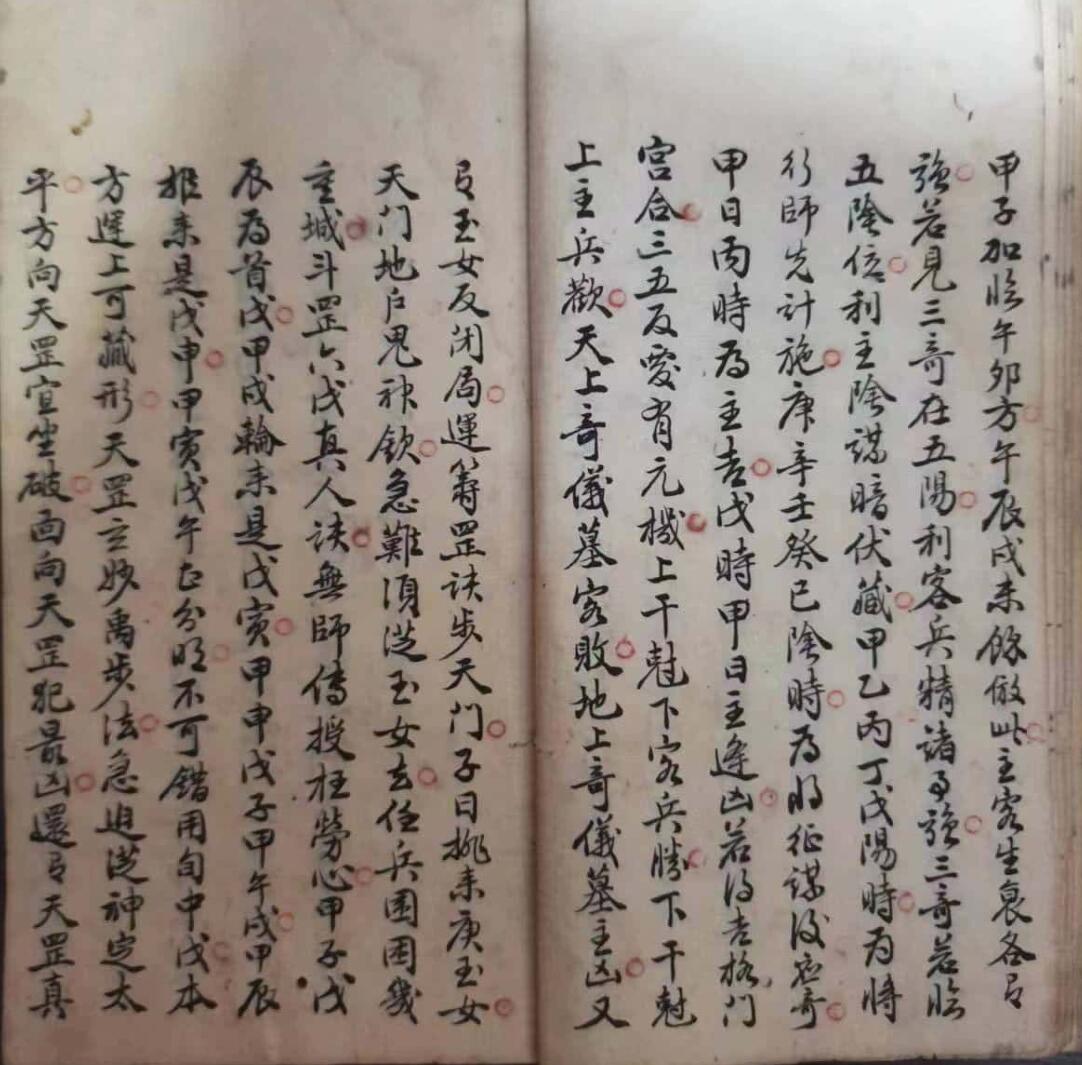 甲子加临午卯方午辰戌未餘倣此主客生衰各有
强若見三奇在五陽利客兵精諸事强三奇若临
五陰位利主陰謀暗伏藏甲乙丙丁戊陽時為將
行師先計施庚辛壬癸己陰時為将征謀後应奇
甲日丙時為主吉戊時甲日主逢凶若得吉格門
宫合三五反爱有元機上干尅下客兵勝下干尅
上主兵歡天上奇儀墓客敗地上奇儀墓主凶又
有玉女反闭局運筹罡訣步天門子日挑来庚玉女
天門地户鬼神欽急難須從玉女去任兵困困幾
重城斗罡六戊真人訣無師傳授枉勞心甲子戊
辰為首戊甲戌輪来是戊寅甲申戊子甲午戌甲辰
推来是戊申甲寅戊午正分明不可錯用旬中戊本
方遲上可藏形天罡玄妙禹步法急迫從神定太
平方向天罡宜坐破面向天罡犯最凶還有天罡真